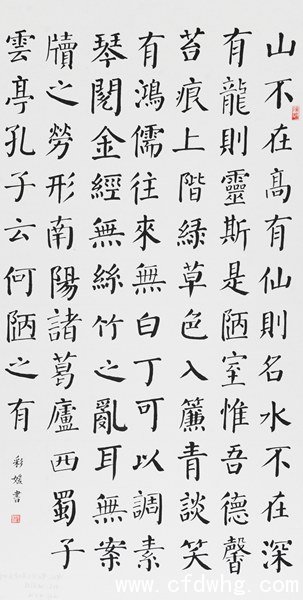 山不在高有仙則名水不在深
有龍則靈斯是陋室惟吾德馨
苔痕上階綠草色入簾青談笑
有鴻儒往來無白丁可以調素
琴閱金經無絲竹之亂耳無案
牘之勞形南陽諸葛廬西蜀子
雲亭孔子云何陋之有
彩媛書
www.cfdwhg.com